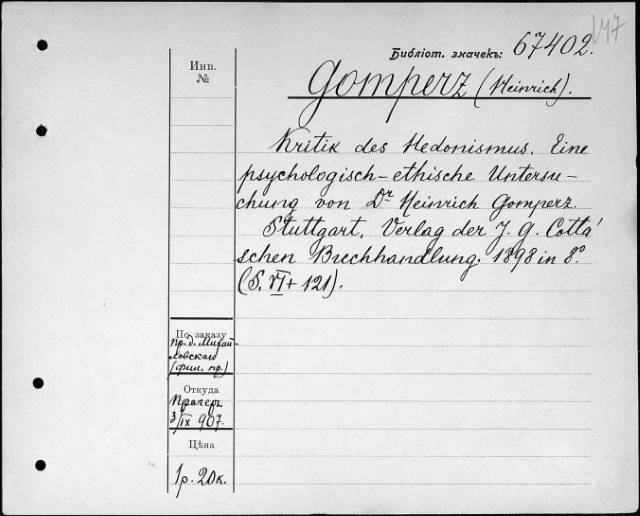 147
Библіот. значекъ: 67402.
Gomperz (Heinrich).
Инв.
№
Kritik des Hedonismus. Eine
psychologisch-ethische Untersu-
chung von Dr Heinrich Gomperz.
Stuttgart. Verlag der J. G. Cotta'
schen Buchhandlung. 1898 in 8°
(S. VI + 121).
По заказу
пр. д. Михай-
ловскаго
(фил. пр.)
Откуда
Прагеръ
3/IX 907.
Цѣна
1 р. 20 к.